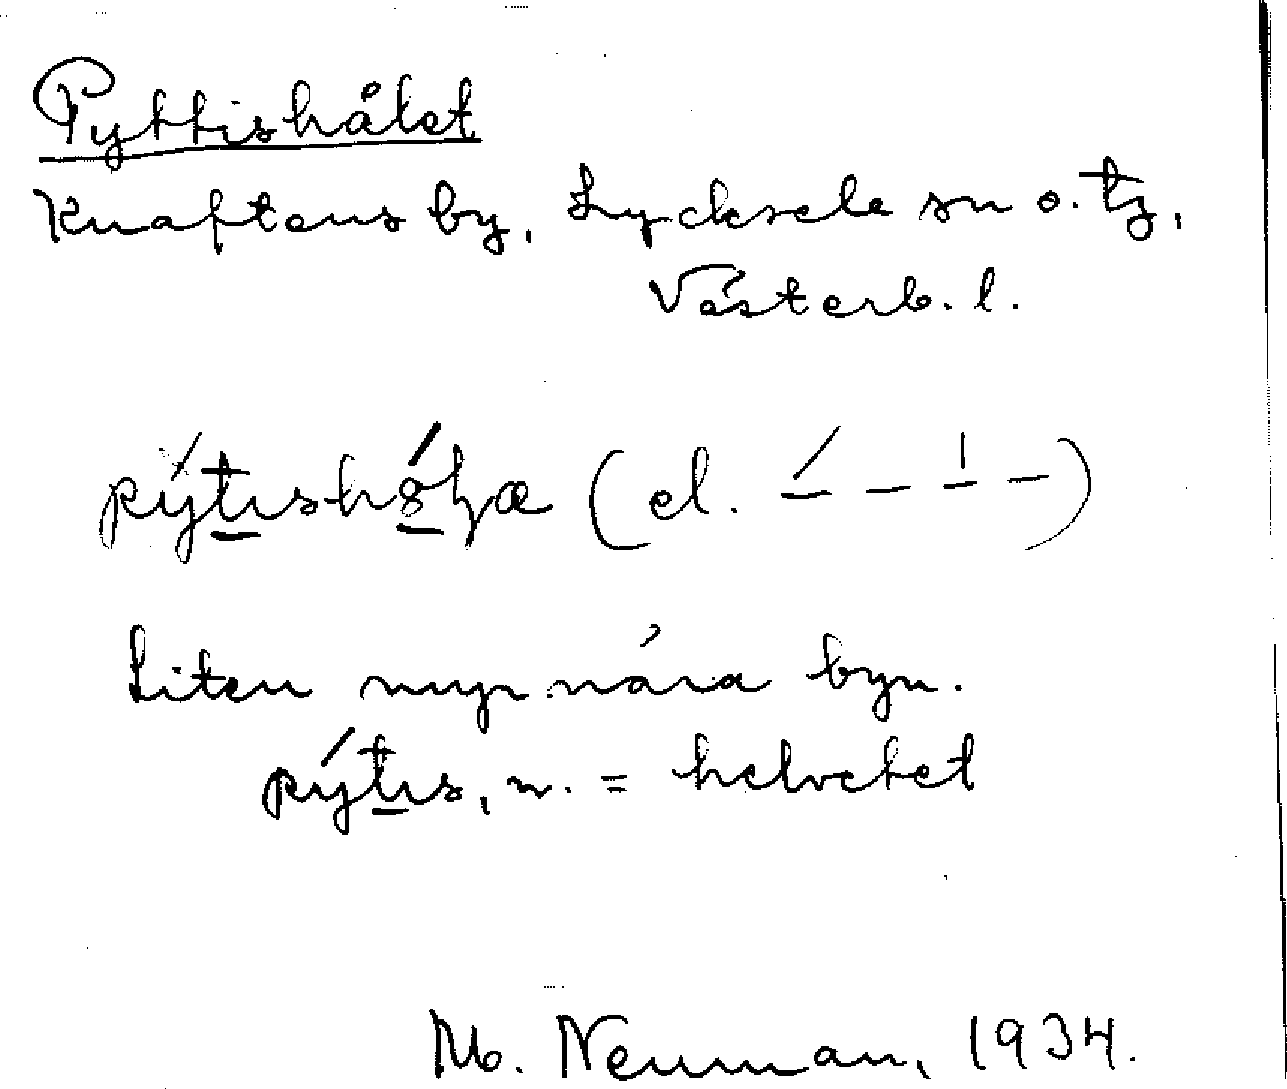 Pyttishålet
Knaftens by, Lycksele sn o. tg,
Västerb. l.
(el.
Liten myr nära byn.
n. = helvetet
M. Neuman, 1934.